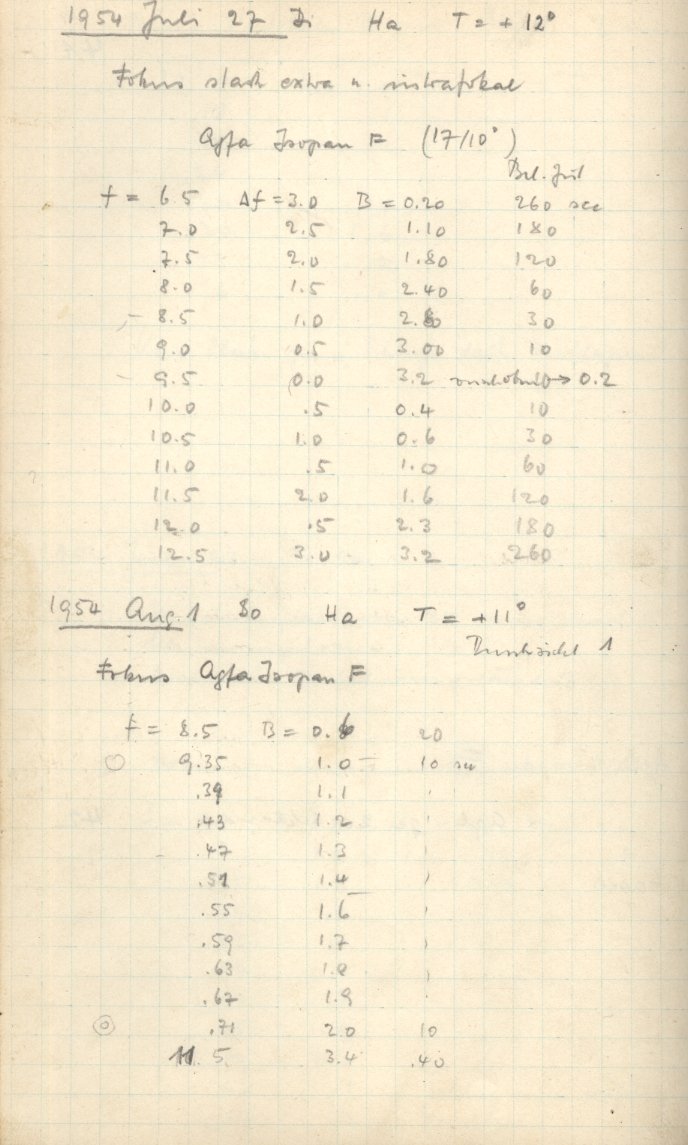 1954 Juli 27 Di Ha T = + 12°
Fokus stark extra u. intrafokal
Agfa Isopan F (17/10°)
Bel. Zeit
f = 6.5 Δf = 3.0 B = 0.20 260 sec
7.0 2.5 1.10 180
7.5 2.0 1.80 120
8.0 1.5 2.40 60
8.5 1.0 2.80 30
9.0 0.5 3.00 10
9.5 0.0 3.2 → 0.2
10.0 .5 0.4 10
10.5 1.0 0.6 30
11.0 .5 1.0 60
11.5 2.0 1.6 120
12.0 .5 2.3 180
12.5 3.0 3.2 260
1954 Aug. 1 So Ha T = +11°
Durchsicht 1
Fokus Agfa Isopan F
f = 8.5 B = 0.6 20
9.35 1.0 = 10 sec
.39 1.1 '
.43 1.2 '
.47 1.3 '
.51 1.4 '
.55 1.6 '
.59 1.7 '
.63 1.8 '
.67 1.9 '
.71 2.0 10
11.5 3.4 .40